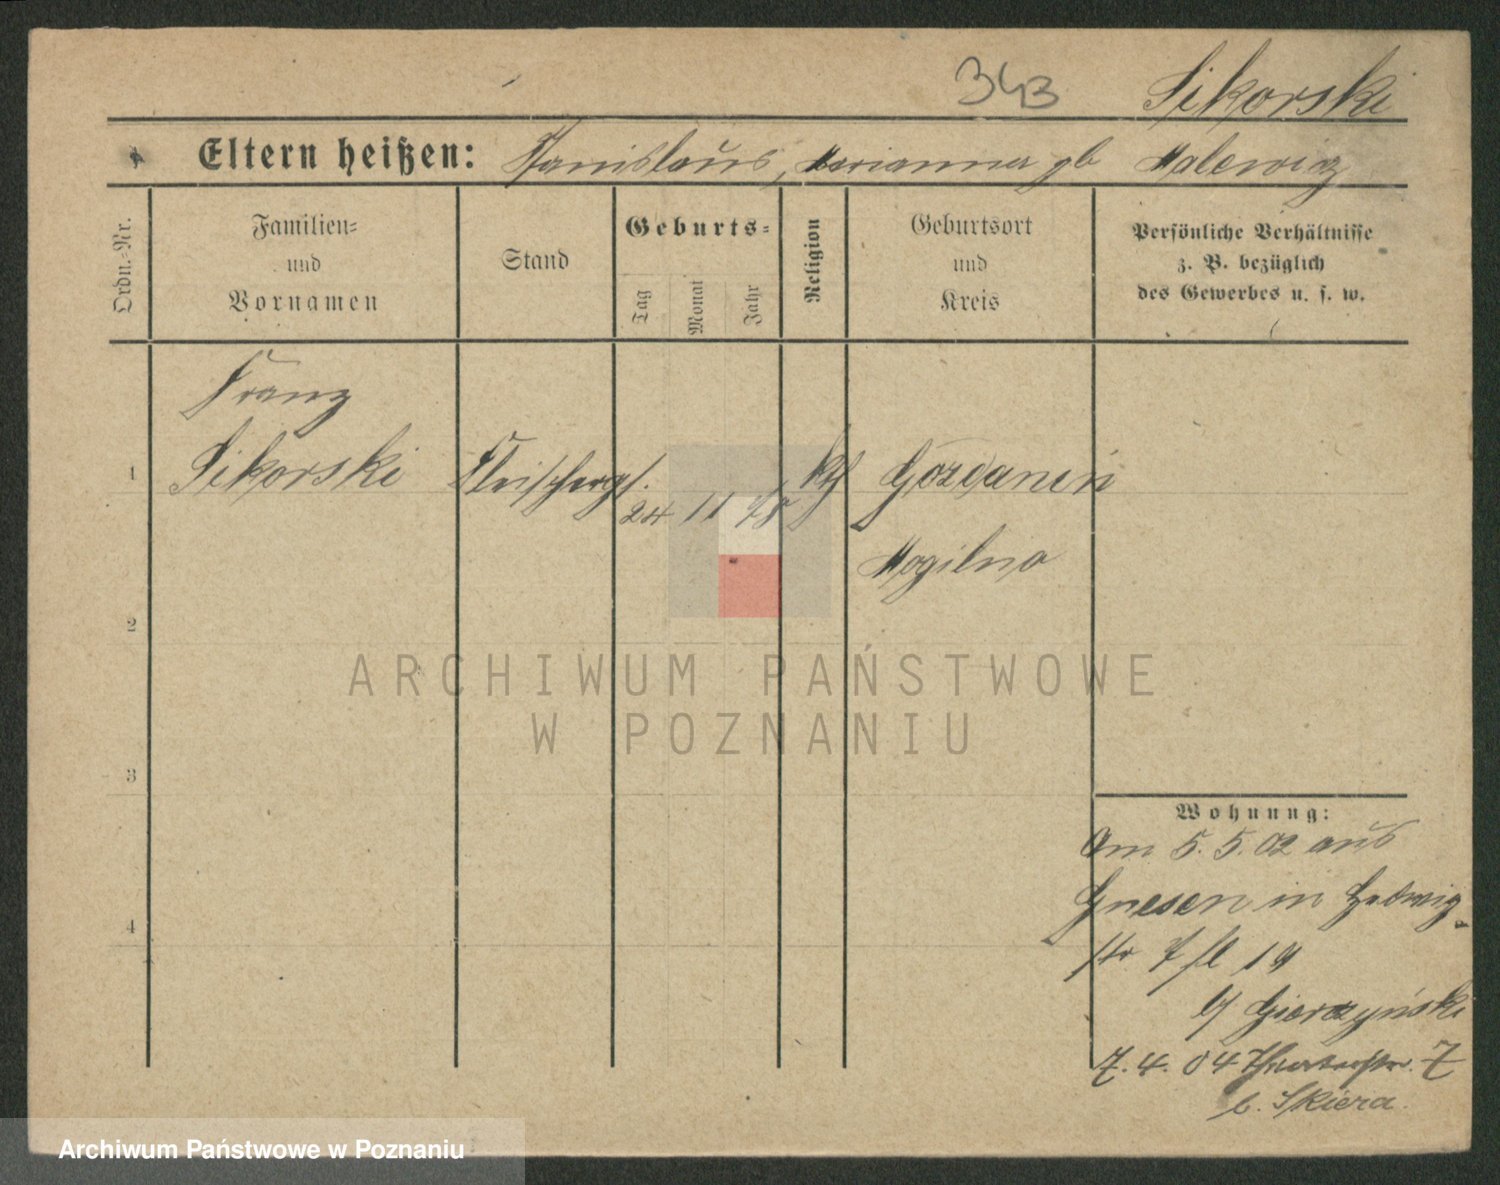 343 Sikorski
Eltern heißen: Stanislaus, Marianna gb Malewicz
Ordn.-Nr.
Familien-
und
Vornamen
Stand
Geburts-
Tag
Monat
Jahr
Religion
Geburtsort
und
Kreis
Persönliche Verhältnisse
z. B. bezüglich
des Gewerbes u. s. w.
Franz
1 Sikorski Fleischerges. 24 11 78 kth Gozdanin
Mogilno
2
3
4
Wohnung:
Am 5. 5. 02 aus
Gnesen in Hedwig-
str 7 19
b/ Gierczyński
7. 4. 04 Theaterstr. 7
b. Skiera.
ARCHIWUM PAŃSTWOWE
W POZNANIU
Archiwum Państwowe w Poznaniu